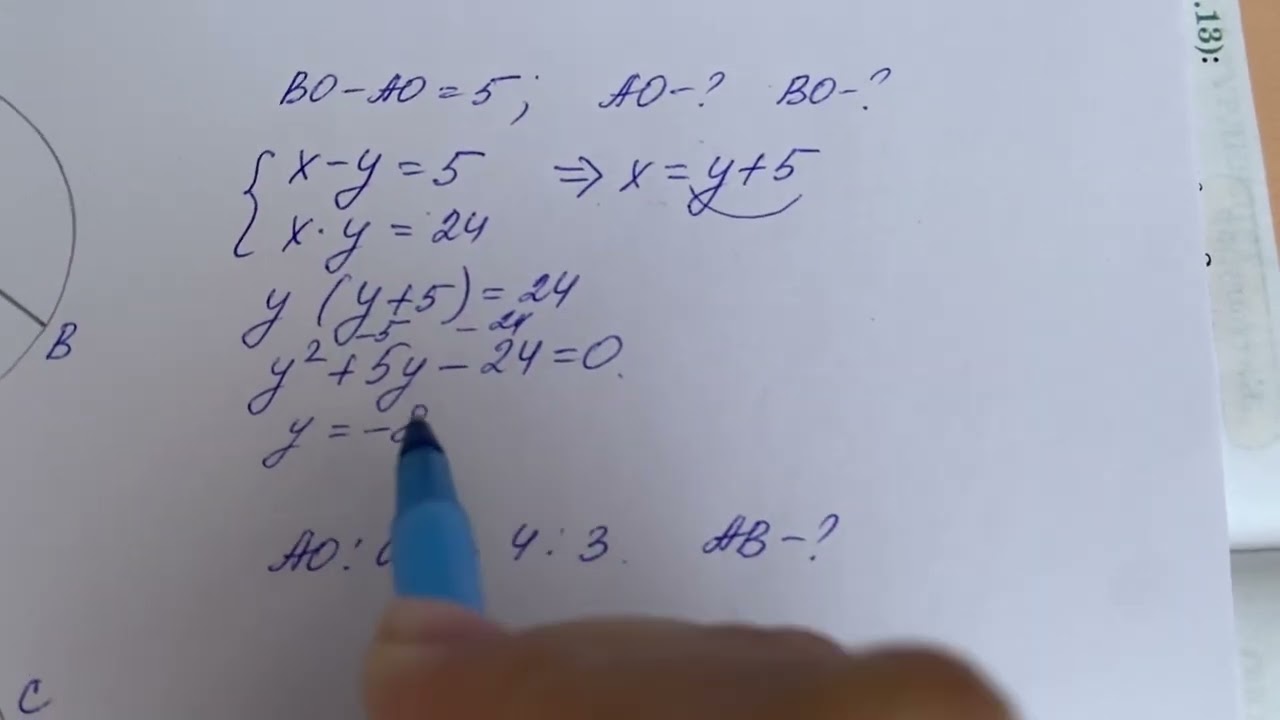 BO - AO = 5; AO - ? BO - ?
{ x - y = 5 ⇒ x = y + 5
x · y = 24
y (y + 5) = 24
-5 - 24
y² + 5y - 24 = 0.
y = -
AO : 4 : 3. AB - ?
B
C
.13):